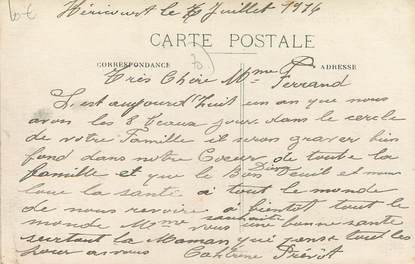 Héricourt le Juillet 1914
CARTE POSTALE
CORRESPONDANCE ADRESSE
Très Chère Mme Ferrand
C'est aujourd'huit un an que nous
avons les 8 beaux jour dans le cercle
de votre Famille il seras graver bien
fond dans notre Coeur de toute la
famille et que le Bon Dieu et nous
la santé a tout le monde
de nous revoire a bientôt tout le
monde Mme vous une bonne santé
surtout la Maman qui pense tout les
jour a vous Catherine